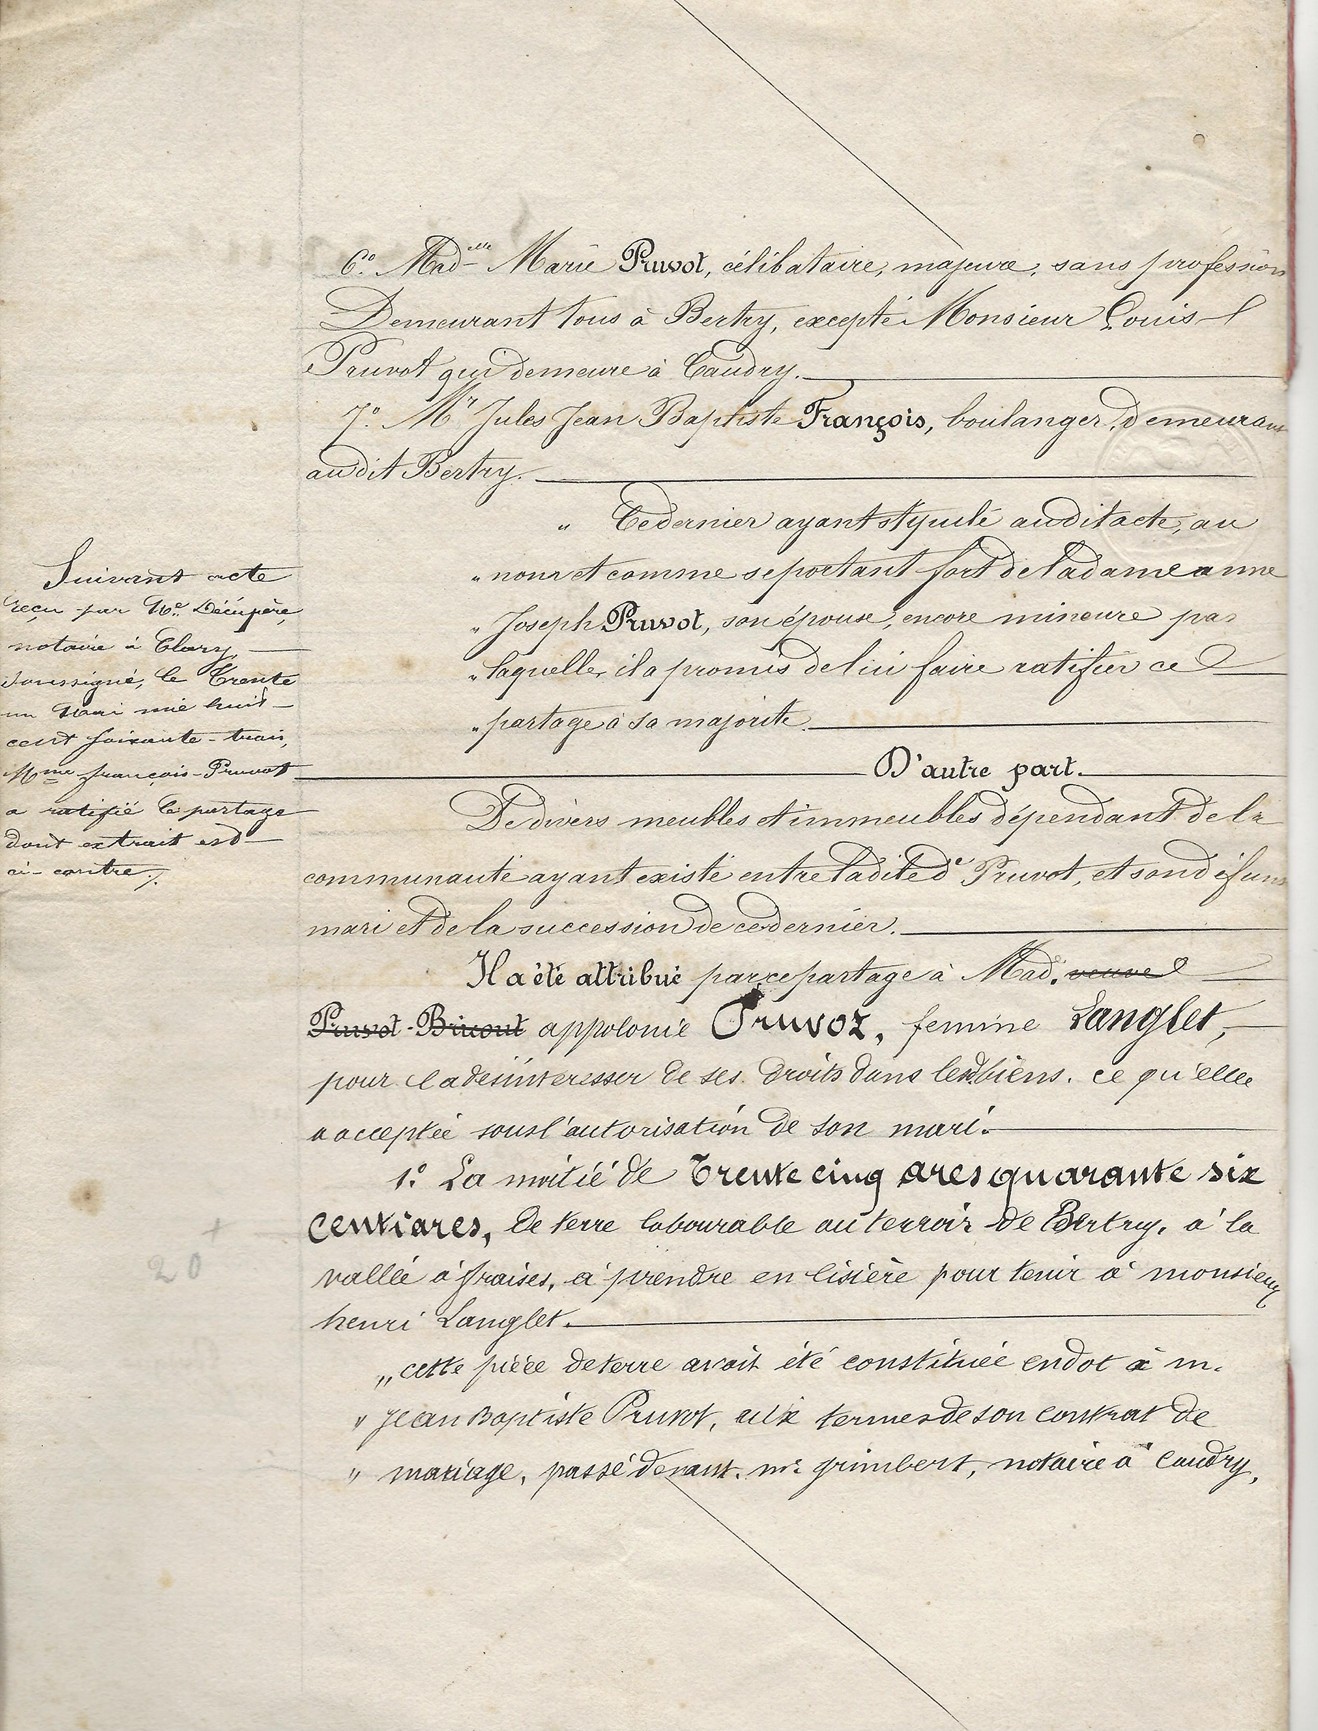 6.° Mad.elle Marie Pruvot, célibataire, majeure, sans profession
Demeurant tous à Bertry, excepté Monsieur Louis
Pruvot qui demeure à Caudry.
7.° Mr Jules Jean Baptiste François, boulanger, demeurant
audit Bertry.
" Ce dernier ayant stipulé audit acte, au
" nom et comme se portant fort de Madame anne
" Joseph Pruvot, son épouse, encore mineure par
" laquelle, il a promis de lui faire ratifier ce
" partage à sa majorité.
D'autre part.
De divers meubles et immeubles dépendant de la
communauté ayant existé entre ladite de Pruvot, et son défunt
mari et de la succession de ce dernier.
Il a été attribué par ce partage à Mad. veuve
Pruvot-Bricout appolonie Pruvoz, femme Langlet,
pour la désintéresser de ses droits dans lesd. biens. ce qu'elle
a acceptée sous l'autorisation de son mari.
1.° La moitié de Trente cinq ares quarante six
centiares, de terre labourable au terroir de Bertry, à la
vallée à fraises, à prendre en lisière pour tenir à monsieur
henri Langlet.
" cette pièce de terre avait été constituée en dot à m.
" Jean Baptiste Pruvot, aux termes de son contrat de
" mariage, passé devant me grimbert, notaire à Caudry,
Suivant acte
reçu par Me. Décupère,
notaire à Clary,
soussigné, le Trente
un Mai mil huit
cent soixante-trois,
Mme françois-Pruvot
a ratifié le partage
dont extrait est
ci-contre ./.
20 +